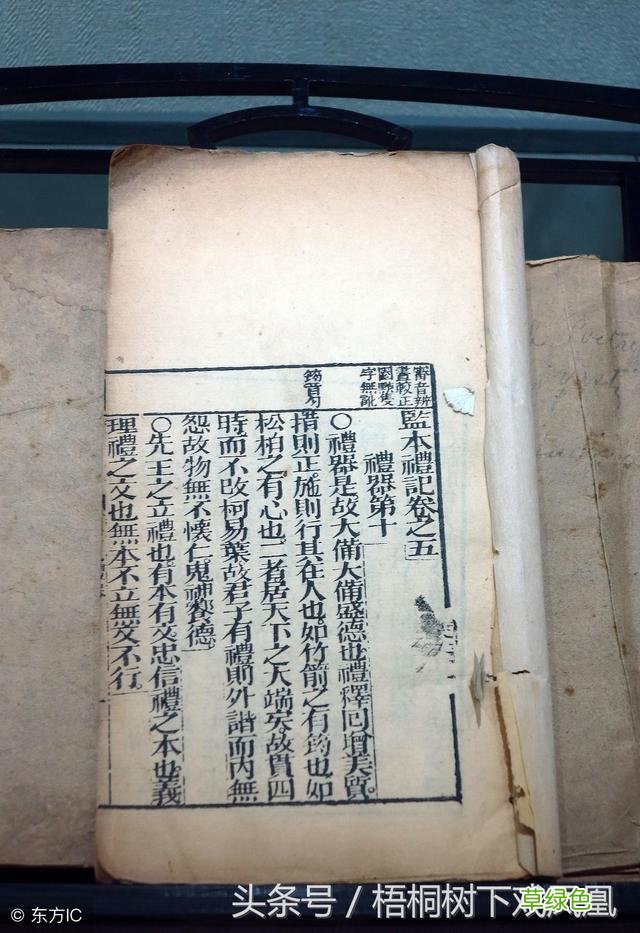 音辨
畫較正
圈點隻
字無訛
監本禮記卷之五
禮器第十
〇禮器是故大備大備盛德也禮釋回增美質。
措則正施則行其在人也如竹箭之有筠也如
松柏之有心也二者居天下之大端矣故貫四
時而不改柯易葉故君子有禮則外諧而內無
怨故物無不懷仁鬼神饗德
〇先王之立禮也有本有文忠信禮之本也義
理禮之文也無本不立無文不行。
© 东方IC
头条号 / 梧桐树下戏凤凰
草绿色